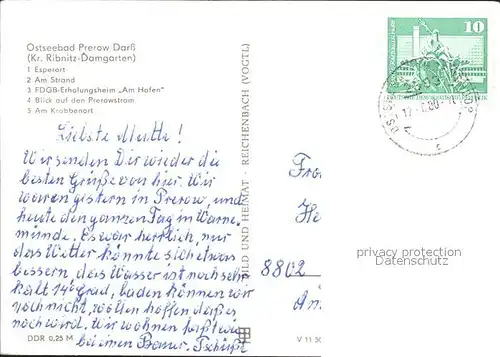 Ostseebad Prerow Darß
(Kr. Ribnitz-Damgarten)
1 Esperort
2 Am Strand
3 FDGB-Erholungsheim „Am Hafen"
4 Blick auf den Prerowstrom
5 Am Krabbenort
Liebste Mutti!
Wir senden Dir wieder die
besten Grüße von hier. Wir
waren gestern in Prerow, und
heute den ganzen Tag in Warne,
münde. Es war herrlich, nur
das Wetter könnte sich etwas
bessern, das Wasser ist noch sehr
kalt 14° grad, baden können wir
noch nicht, wollen hoffen daß es
noch wird. Wir wohnen jetzt
bei einen Bauer. Tschüß
DDR 0,25 M
BILD UND HEIMAT · REICHENBACH (VOGTL)
V 11 50
10
8802
privacy protection
Datenschutz